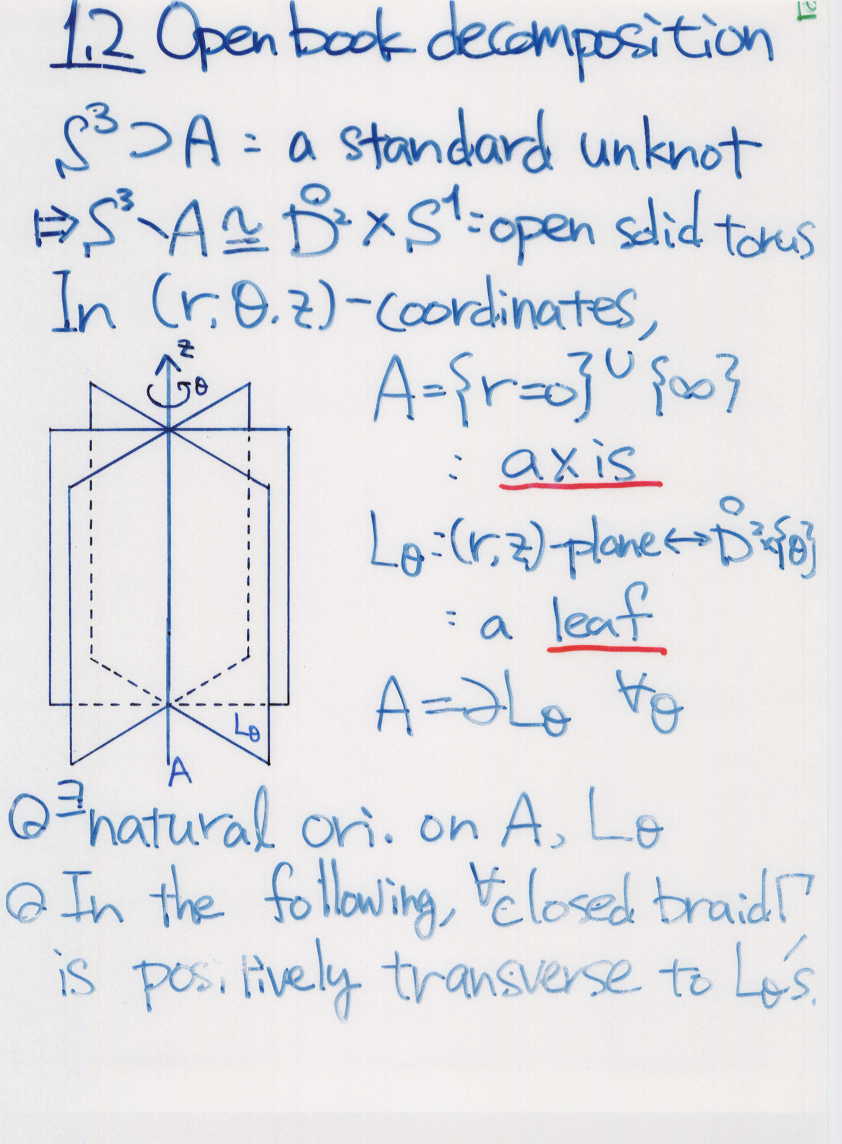 1.2 Open book decomposition
S³ ⊃ A = a standard unknot
⇒ S³ ∖ A ≅ D̊² × S¹ = open solid torus
In (r, θ, z)-coordinates,
A = {r = 0} ∪ {∞}
: axis
L_θ = (r, z)-plane ↔ D̊² × {θ}
: a leaf
A = ∂L_θ ∀θ
z
θ
L_θ
A
∃ natural ori. on A, L_θ
In the following, ∀closed braid Γ
is positively transverse to L_θ's.